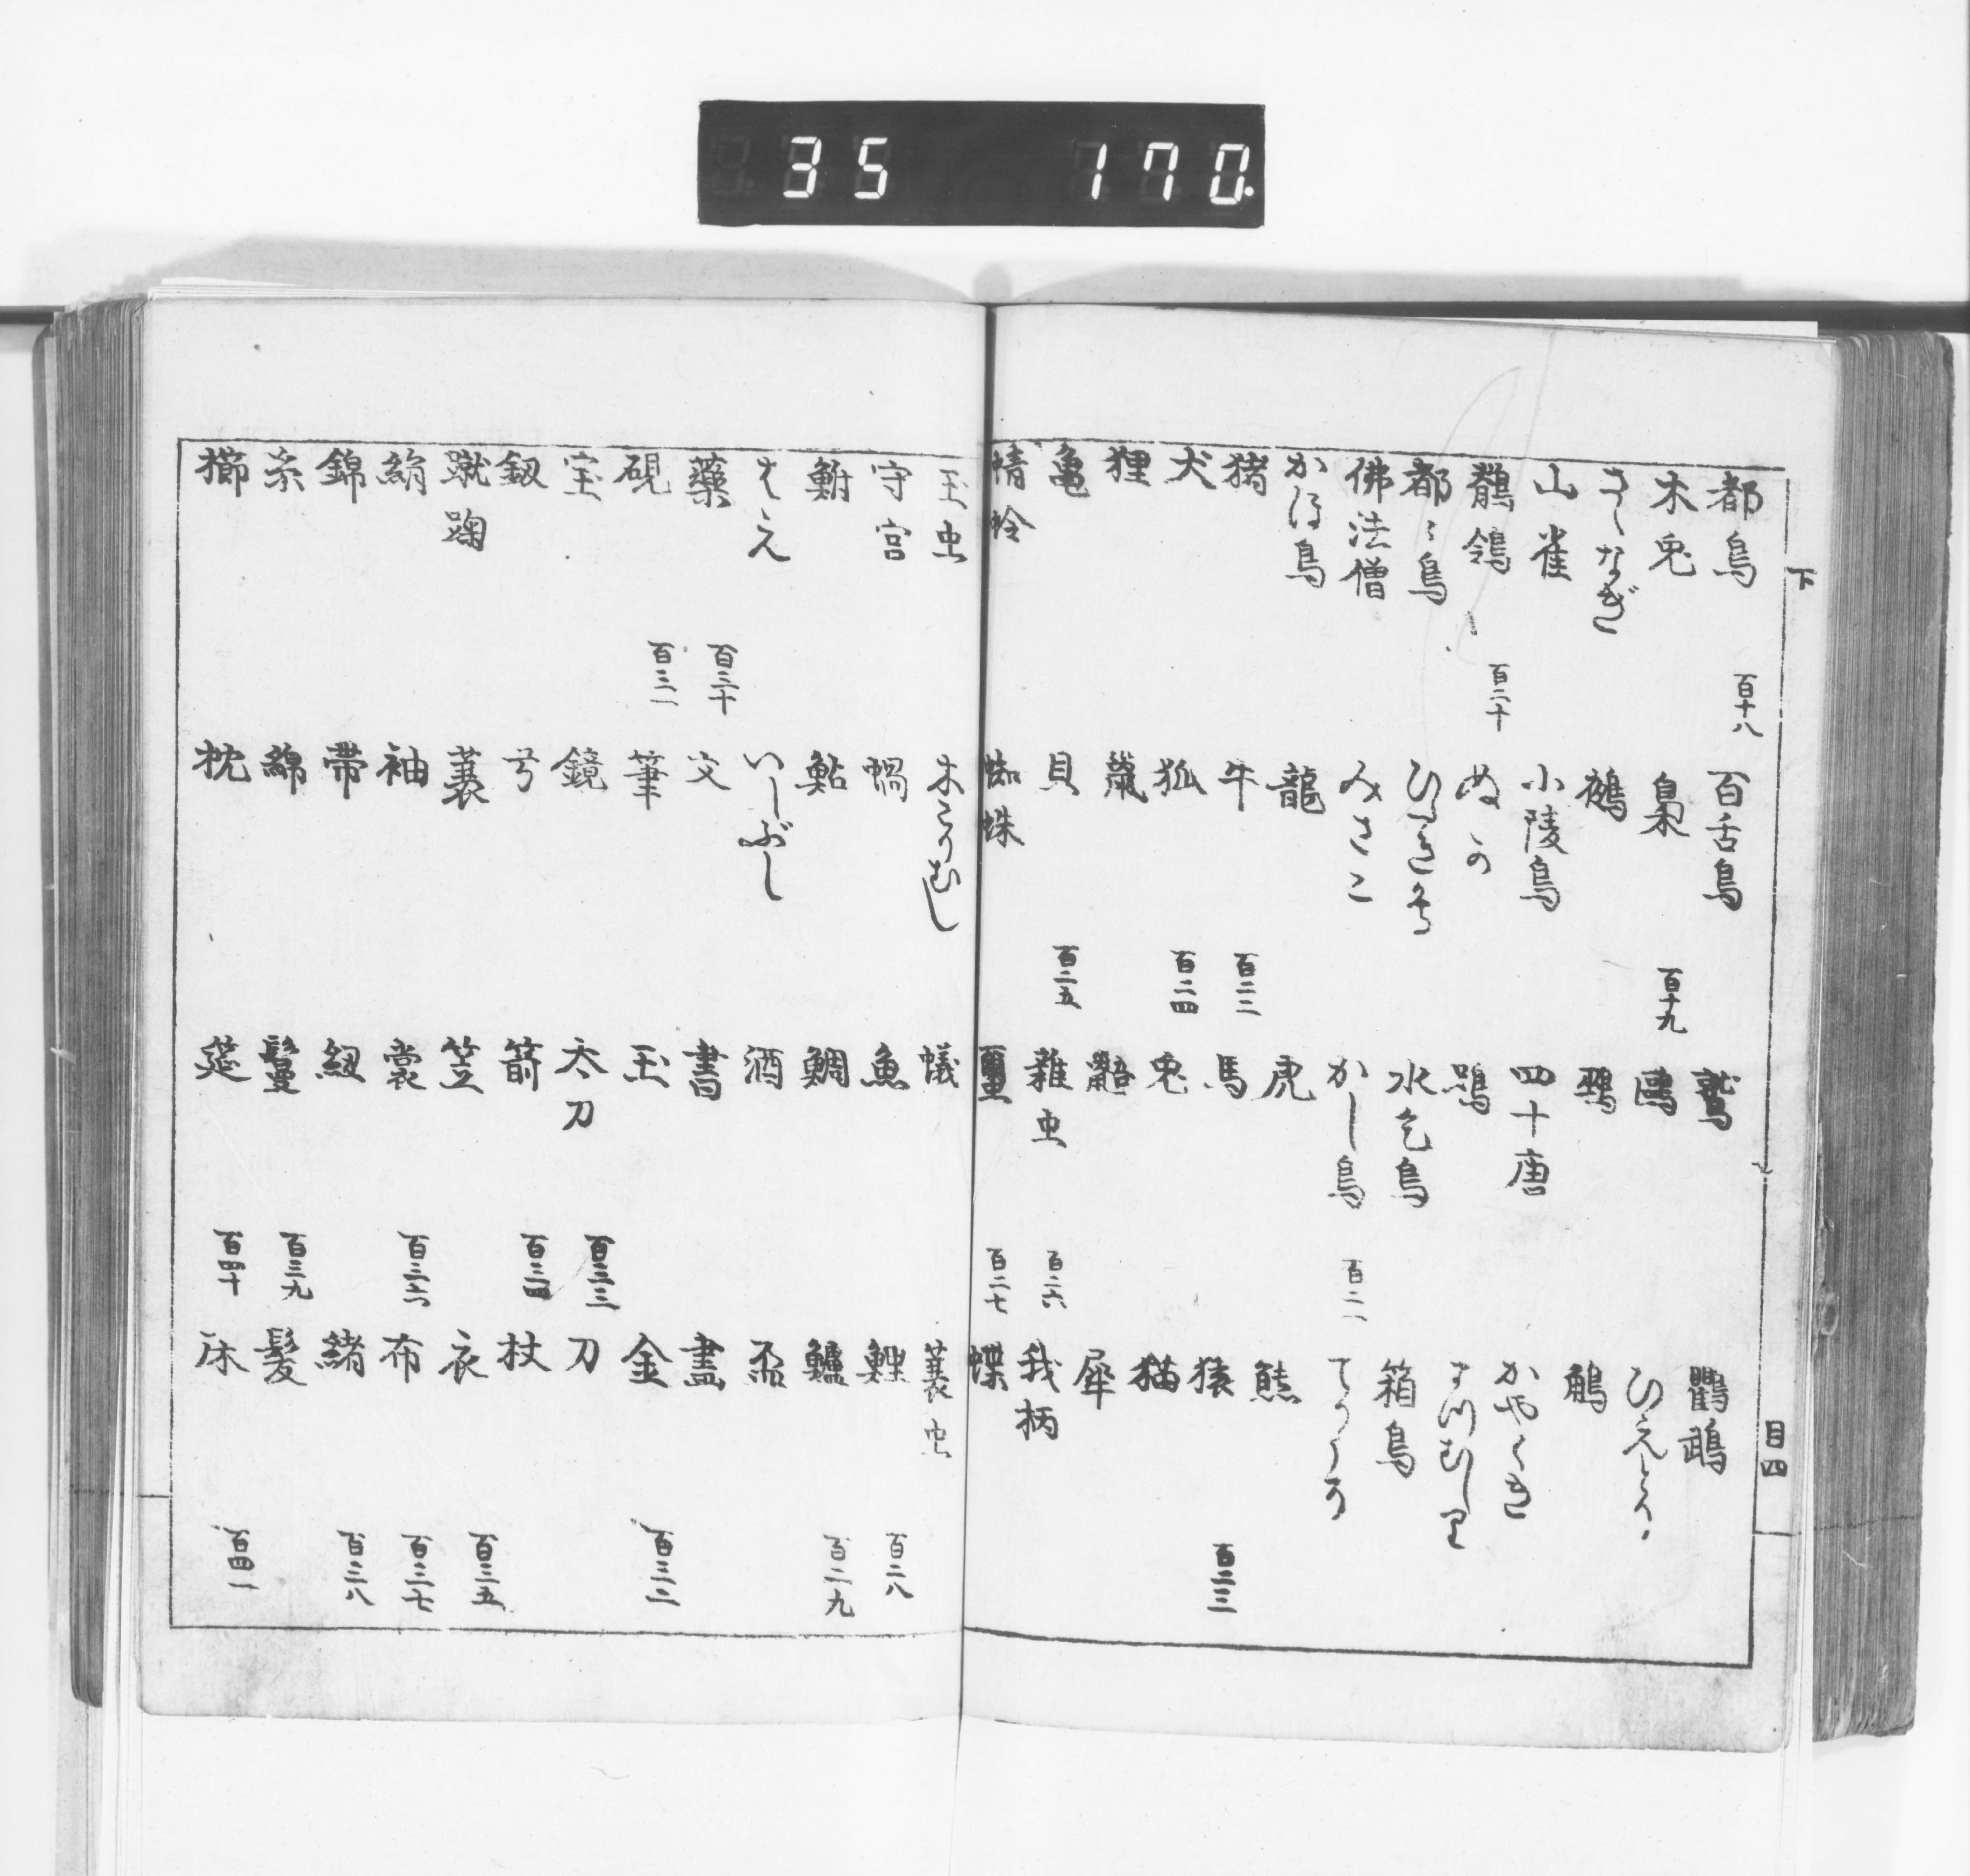 35 170.
下
目四
都鳥 百十八 百舌鳥 鷲 鸚鵡
木兎 梟 百十九 鷗 ひえとり
さゝなぎ 鵺 鵶 鵤
山雀 小陵鳥 四十唐 かやくき
鶺鴒 百二十 ぬか 鵼 すゝむしり
都ゝ鳥 ひたき 水乞鳥 箱鳥
佛法僧 みさこ かし鳥 百二一 てりうそ
かほ鳥 龍 虎 熊
猪 牛 百二二 馬 猿 百二三
犬 狐 百二四 兎 猫
狸 犀
亀 貝 百二五 雜虫 百二六 我柄
蜻蛉 蜘蛛 百二七 蝶
玉虫 蟻 蓑虫
守宮 蝸 魚 鯉 百二八
鮒 鮎 鯛 鱸 百二九
はえ いしぶし 酒 盃
藥 百三十 文 書 畫
硯 百三一 筆 玉 金 百三二
宝 鏡 太刀 百三三 刀
釼 弓 箭 百三四 杖
蹴鞠 蓑 笠 衣 百三五
絹 袖 裳 百三六 布 百三七
錦 帯 紐 緒 百三八
糸 綿 鬘 百三九 髪
櫛 枕 筵 百四十 床 百四一